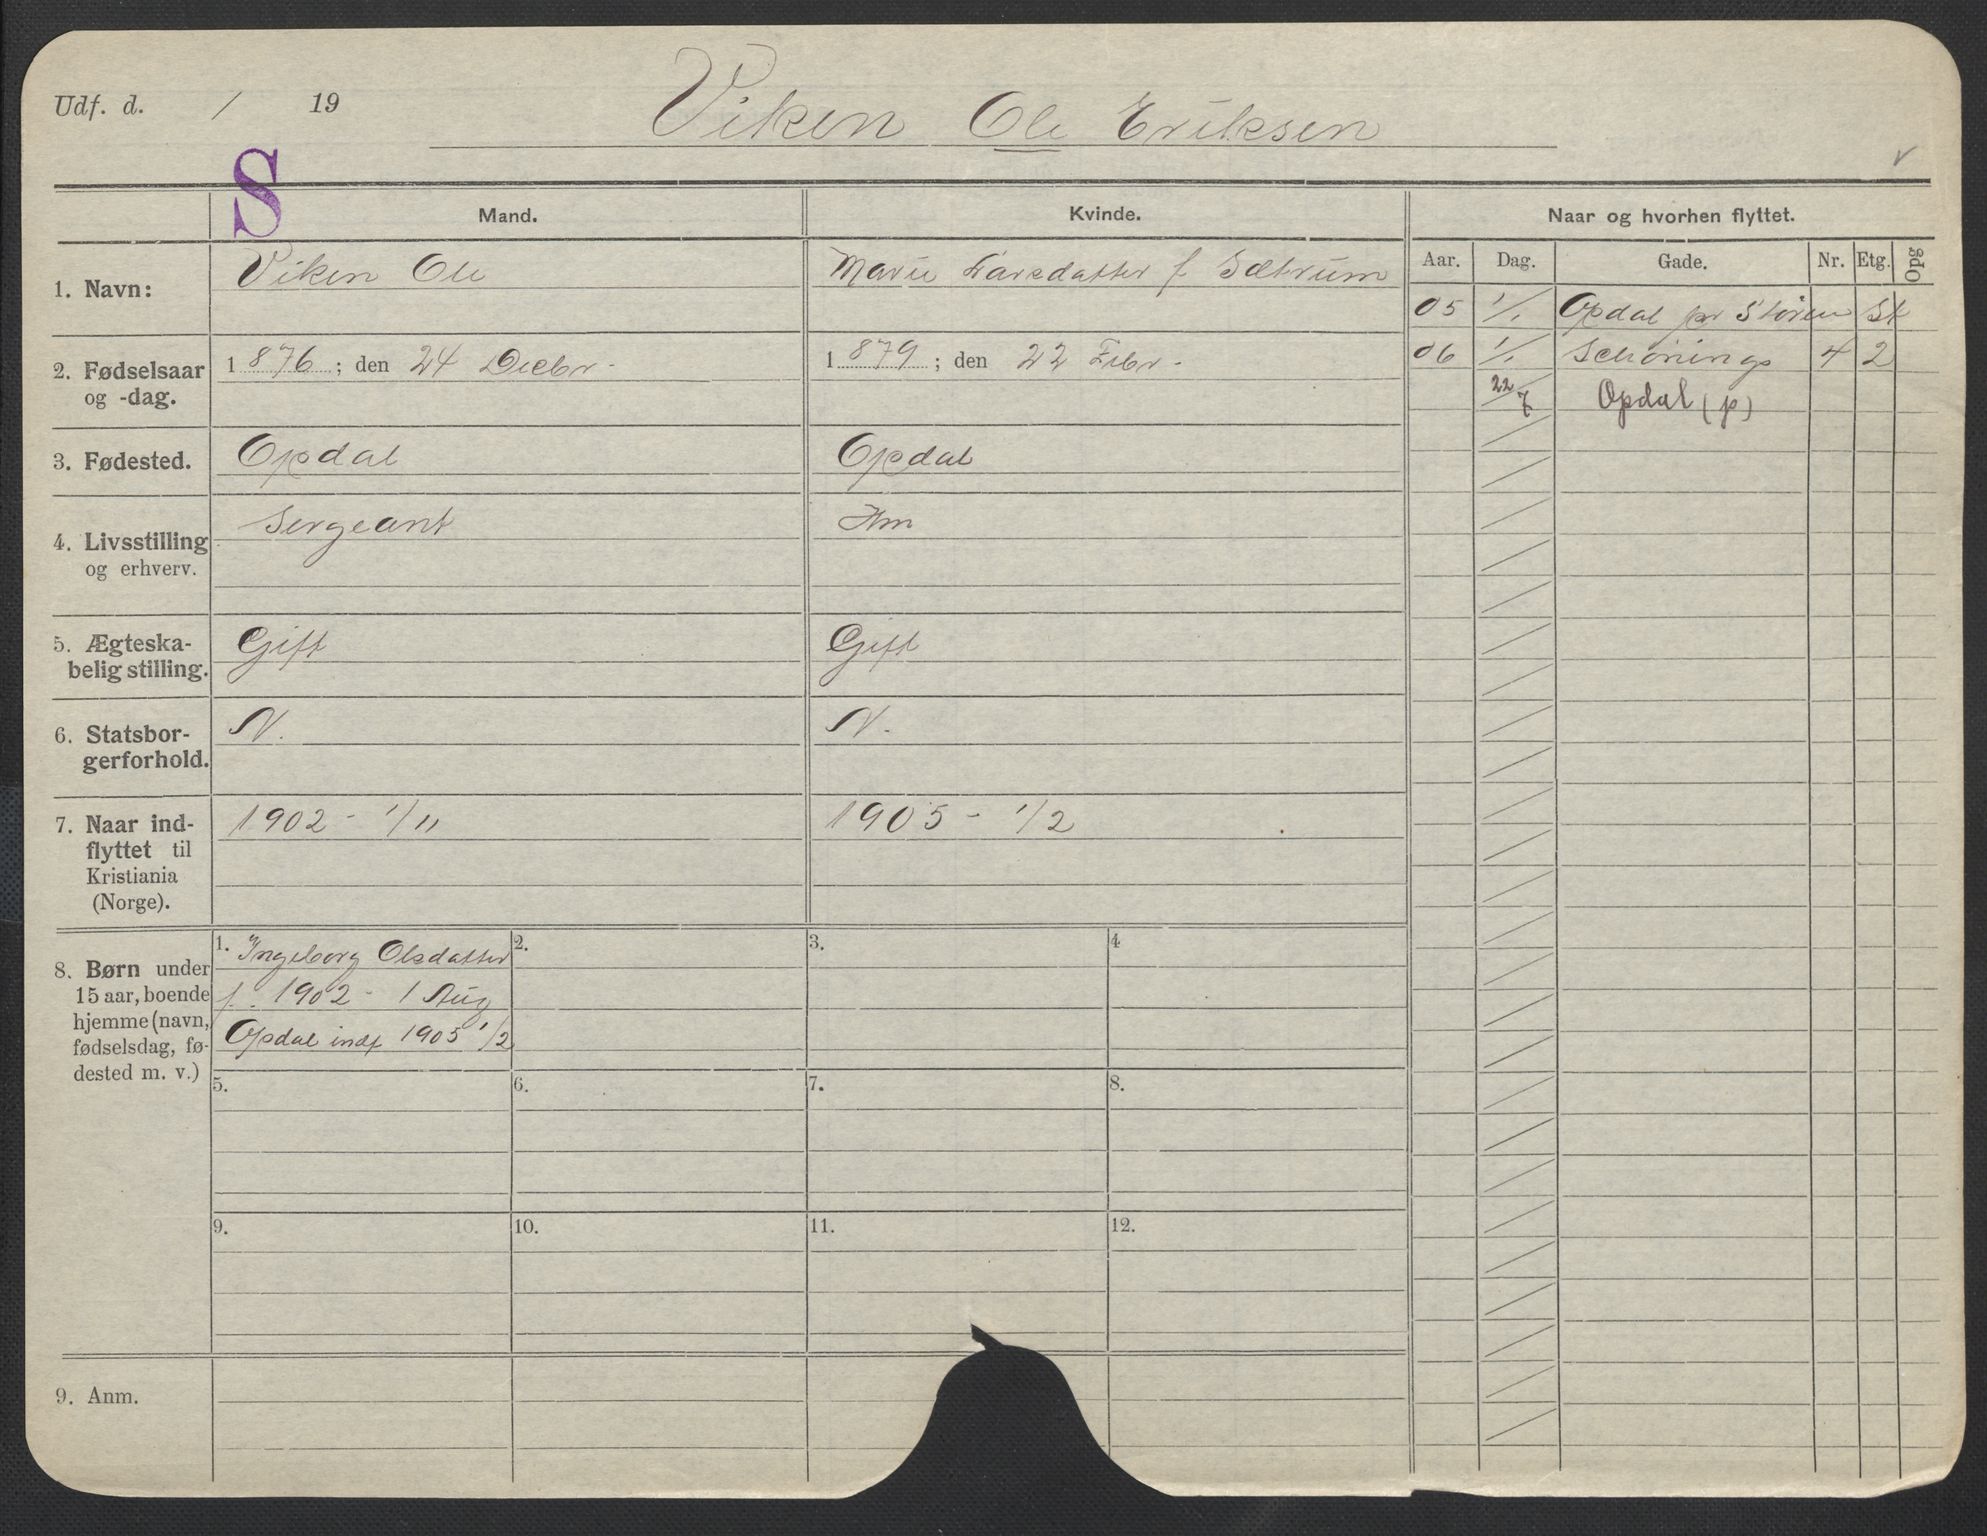 Udf. d. / 19
Viken Ole Eriksen
S
Mand.
Kvinde.
Naar og hvorhen flyttet.
Aar. Dag. Gade. Nr. Etg. Opg
1. Navn:
Viken Ole
Marie Larsdatter f Sætrum
05 1/1 Opdal pr Støren St
06 1/1 Schønings 4 2
22/7 Opdal (p)
2. Fødselsaar
og -dag.
1876; den 24 Decbr.
1879; den 22 Febr.
3. Fødested.
Opdal
Opdal
4. Livsstilling
og erhverv.
Sergeant
Hm
5. Ægteska-
belig stilling.
Gift
Gift
6. Statsbor-
gerforhold.
N.
N.
7. Naar ind-
flyttet til
Kristiania
(Norge).
1902 - 1/11
1905 - 1/2
8. Børn under
15 aar, boende
hjemme (navn,
fødselsdag, fø-
dested m. v.)
1. Ingeborg Olsdatter
f. 1902 - 1 Aug
Opdal indf 1905 1/2
2.
3.
4
5.
6.
7.
8.
9.
10.
11.
12.
9. Anm.